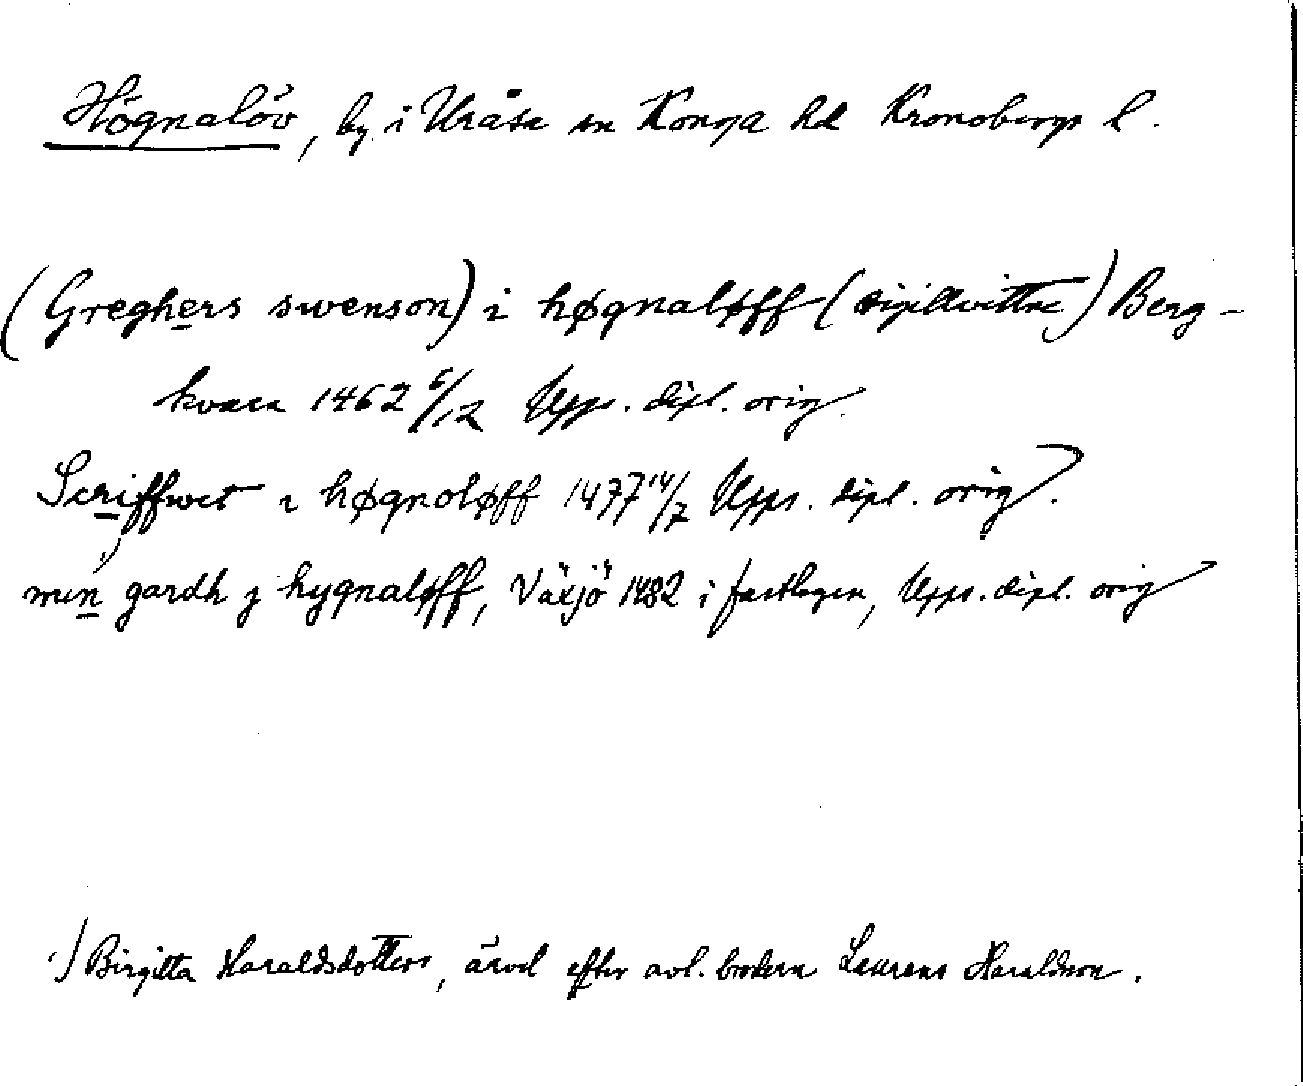 Högnalöv, by i Uråsa sn Konga hd Kronobergs l.
(Greghers swenson) i høgnaløff (sigillvittne) Berg-
kvara 1462 6/12 Upps. dipl. orig.
Scriffwet i høgnoløff 1477 14/7 Upps. dipl. orig.
min 1) gardh j hygnaløff, Växjö 1482 i fastlagen, Upps. dipl. orig
1) Birgitta Haraldsdotters, ärvd efter avl. brodern Laurens Haraldson.